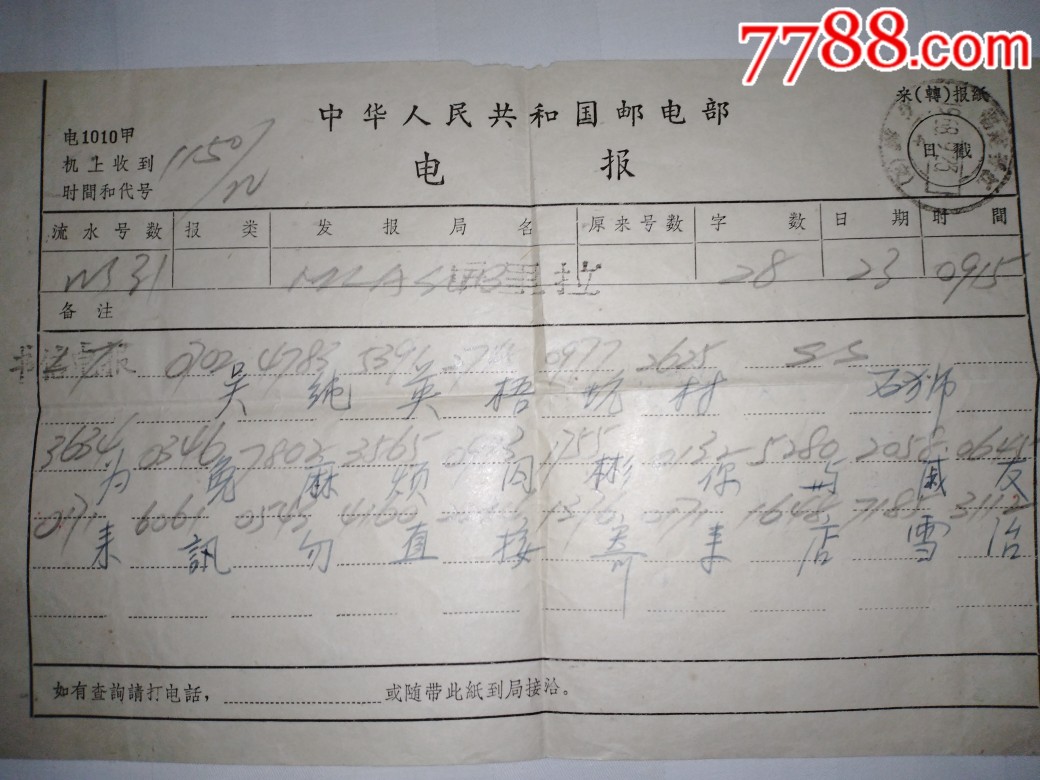 7788.com
来(轉)报紙
中华人民共和国邮电部
电1010甲
机上收到
时間和代号
1150/
电报
日戳
流水号数 报类 发报局名 原来号数 字数 日期 时間
31 MLA 28 23 0915
备注
0702 4783 5391 0977 2625 SS
吴纯英梧坑村 石狮
3634 0346 7802 3565 1755 0132 5280 2058 0645
为免麻烦同彬你与戚友
0171 6061 0543 4160 1648 7185 3112
来訊勿直接寄来店雪冶
如有查詢請打电話， 或随带此紙到局接洽。